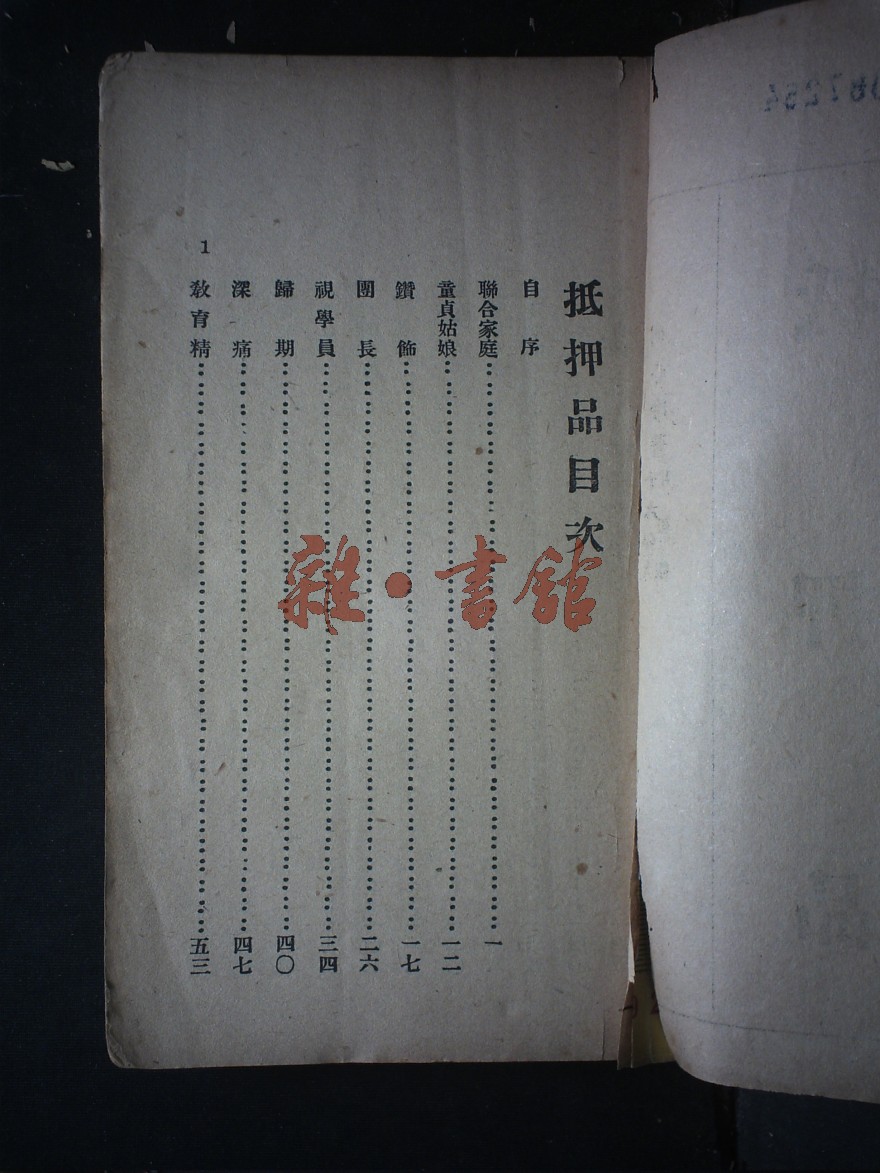 抵押品目次
自序
聯合家庭……一
童貞姑娘……一二
鑽飾……一七
團長……二六
視學員……三四
歸期……四〇
深痛……四七
教育精……五三
1
雜·書館